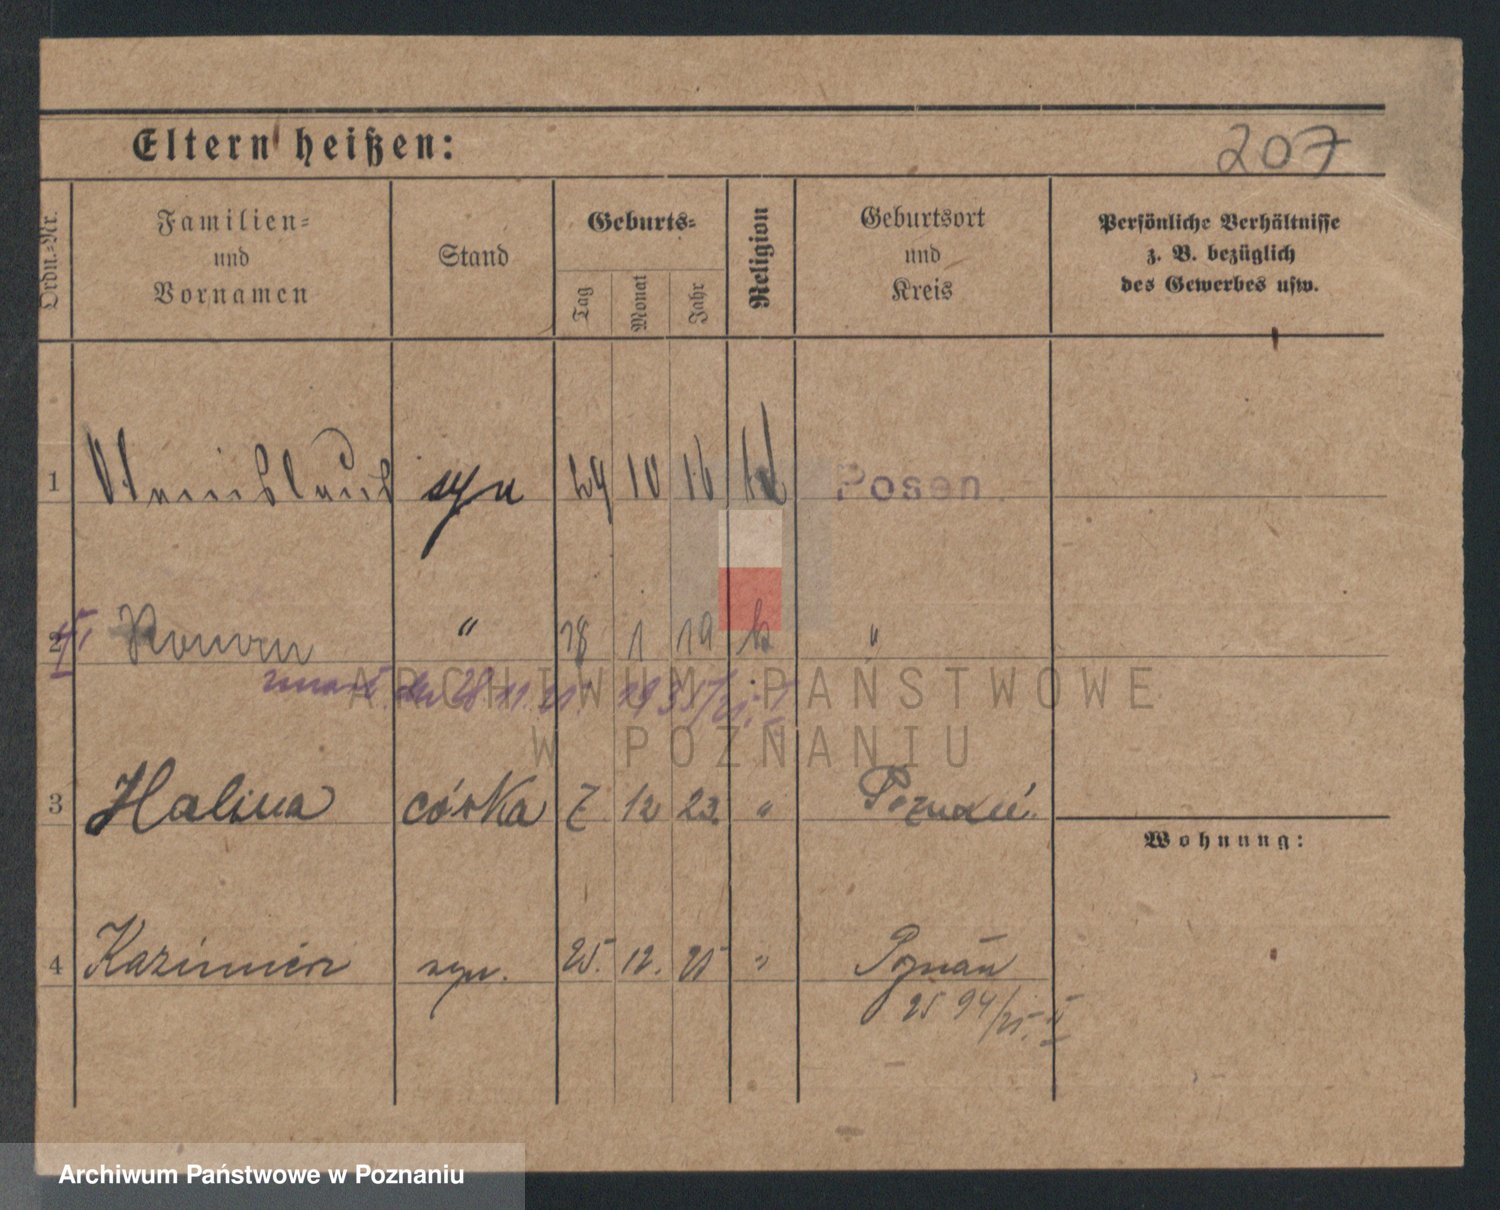 Eltern heißen:
207
Ordn.=Nr.
Familien=
und
Vornamen
Stand
Geburts=
Tag
Monat
Jahr
Religion
Geburtsort
und
Kreis
Persönliche Verhältnisse
z. B. bezüglich
des Gewerbes usw.
1 syn 29 10 16 Posen
2 Roman " 18 1 19 k "
28 11
ARCHIWUM PAŃSTWOWE
W POZNANIU
3 Halina córka 7 12 23 " Poznań.
Wohnung:
4 Kazimierz syn. 25. 12. 25 " Poznań
2594/25.
Archiwum Państwowe w Poznaniu